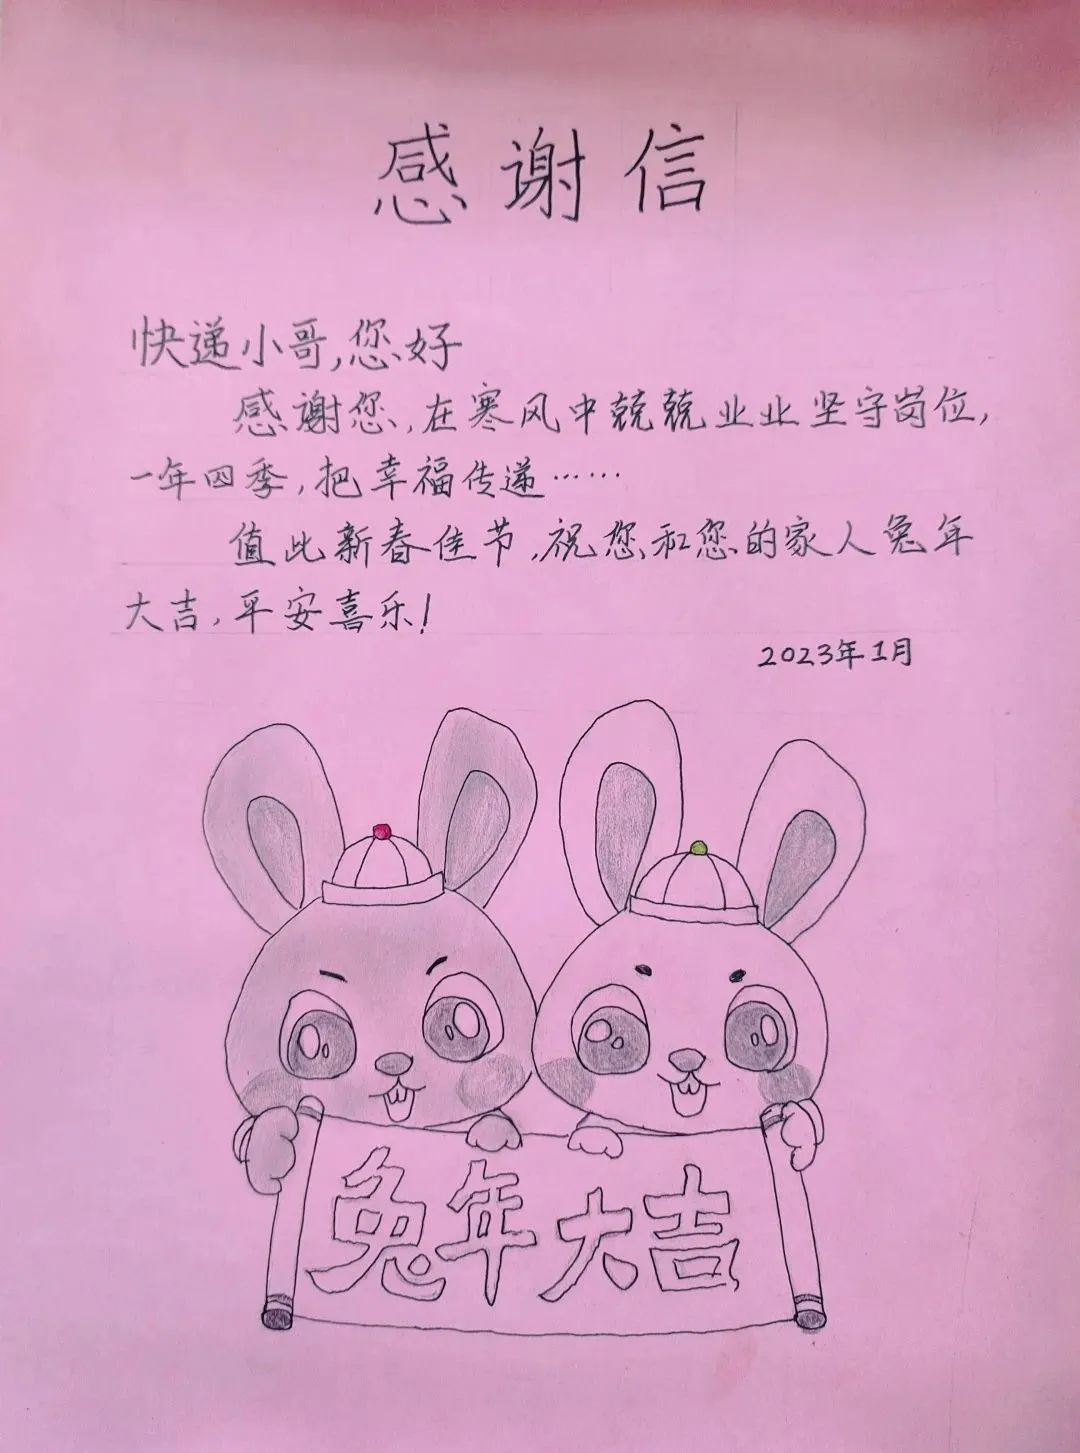 感谢信
快递小哥,您好
感谢您,在寒风中兢兢业业坚守岗位,
一年四季,把幸福传递……
值此新春佳节,祝您和您的家人兔年
大吉,平安喜乐!
2023年1月
兔年大吉